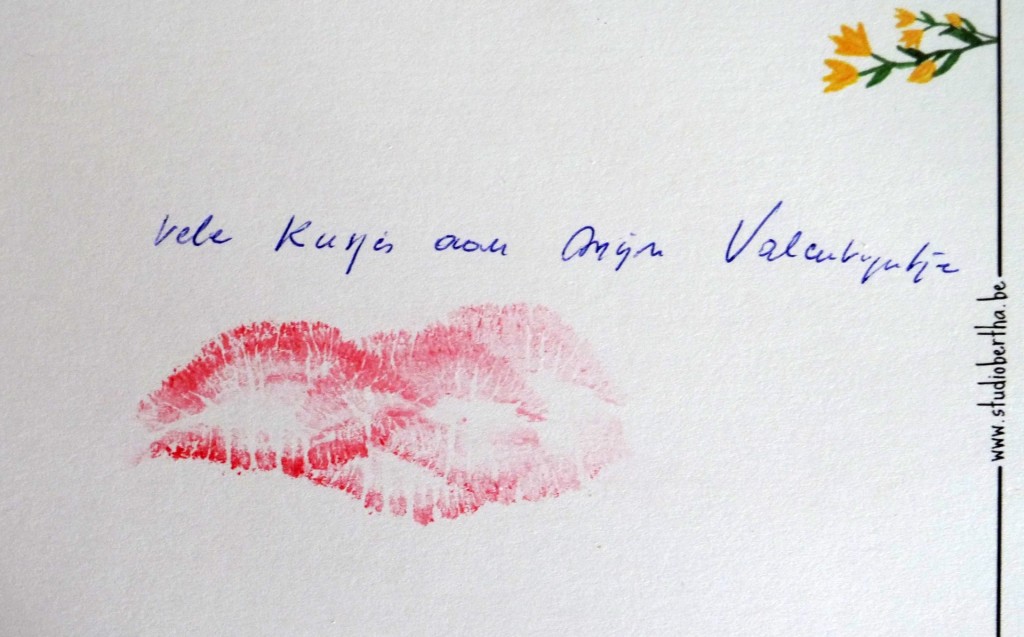 Vele Kusjes aan mijn Valentijntje
www.studiobertha.be